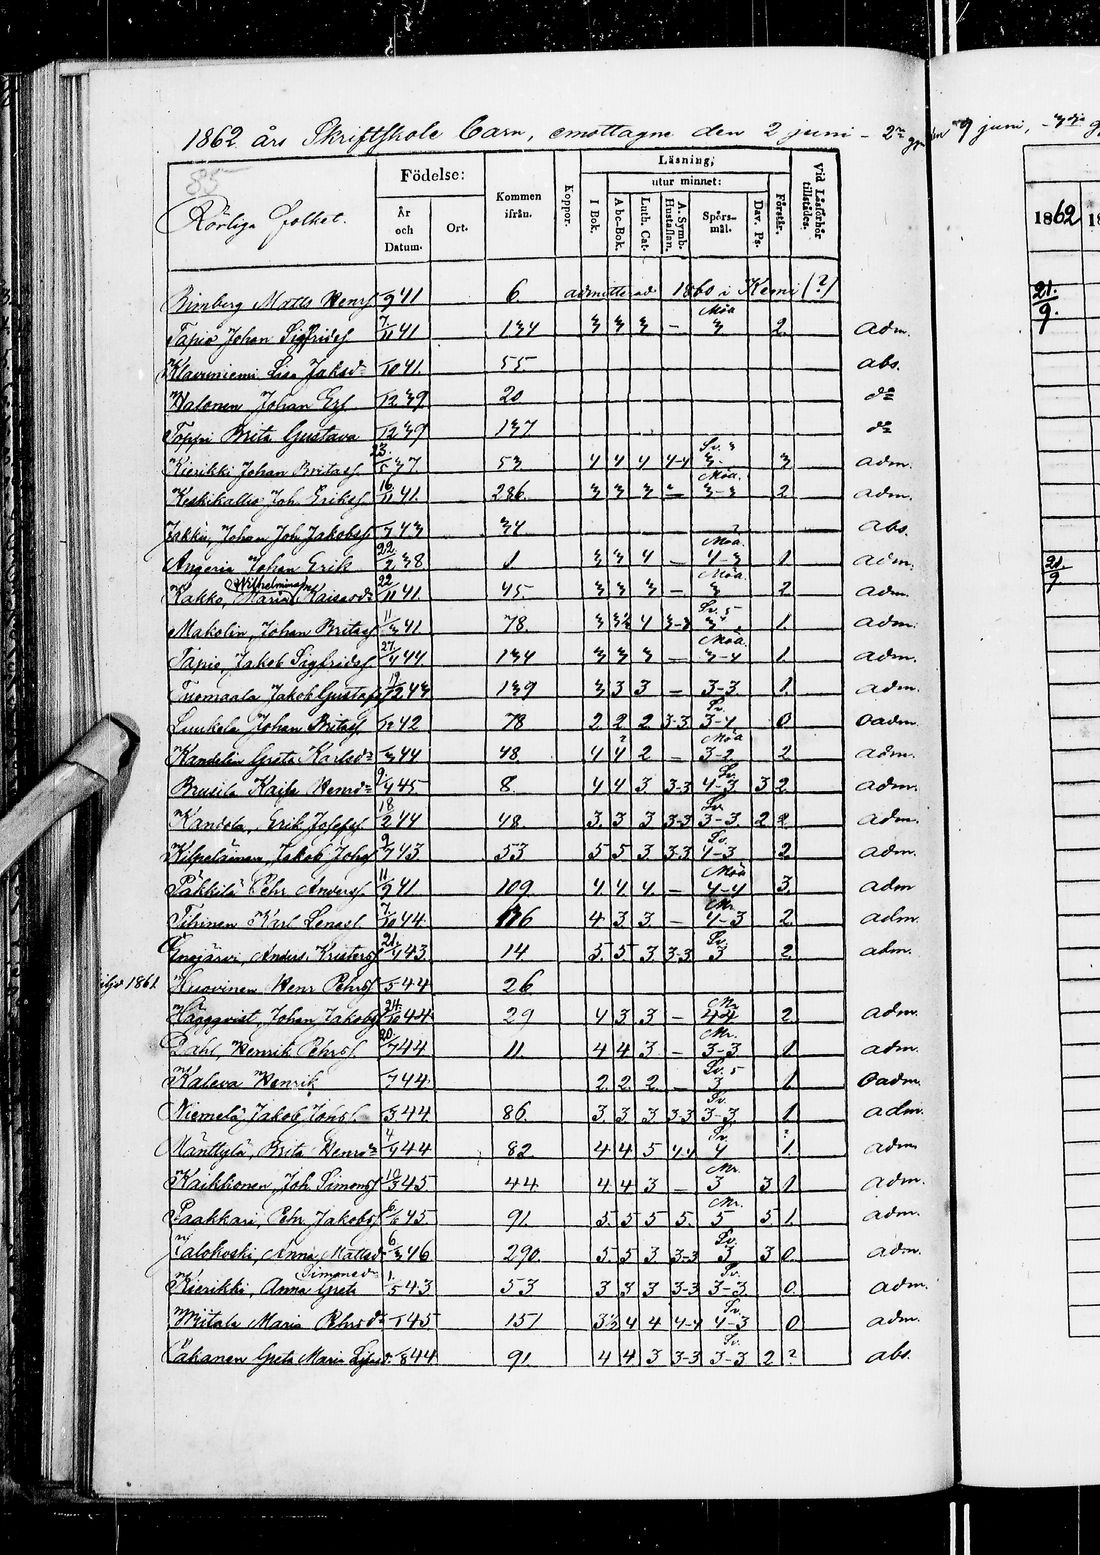 1862 års Skriftskole Barn, emottagne den 2 juni - 2:n 9 juni,
85
Rörliga folket.
Födelse:
År och Datum.
Ort.
Kommen ifrån.
Koppor.
Läsning;
utur minnet:
I Bok.
Abc-Bok.
Luth. Cat.
A. Symb. Hustaflan.
Spörs-mål.
Dav. Ps.
Förstår.
Vid Läsförhör tillstädes.
1862
Rimberg Matts Henrs 9 41 6 admitterad 1860 i Kemi (?) 21/9.
Tapio Johan Sigfrids 7/11 41 134 3 3 3 - Möa 3 2 adm.
Klaaviniemi Lisa Jaksdr 10 41 55 abs.
Walonen Johan 12 39 20 do
Toppi Brita Gustava 12 39 137 do
Kierikki Johan Britas 23/5 37 53 4 4 4 4-4 Sv. 3 3 3 adm.
Koskikallio Joh. Eriks 16/11 41 286 3 3 3 - Möa. 3-3 2 adm.
Jakku, Johan Joh. Jakobs 7 43 34 abs.
Angeria Johan Erik 22/2 38 1 3 3 4 - Möa. 4-3 1 adm. 21/9
Kakko, Maria Wilhelmina Kaisasdr 22/11 41 45 3 3 3 - Möa. 3 2 adm.
Makolin, Johan Britas 11/3 41 78. 3 3½ 4 3-3 Sv. 5 3 1. adm.
Tapio, Jakob Sigfrids 27/4 44 134 3 3 3 - Möa. 3-4 1. adm.
Tuomaala Jakob Gustafs 19/12 43 139 3 3 3 - 3-3 1. adm.
Luukela Johan Britas 12 42 78 2 2 2 3-3 Sv. 3-4 0 oadm.
Kandelin Greta Karlsdr 3 44 48. 4 4 2 - Möa 3-2 2 adm.
Brusila Kaisa Henrsdr 9/4 45 8. 4 4 3 3-3 Sv. 4-3 3 2 adm.
Kandola, Erik Josefs 18/2 44 48. 3. 3 3 3-3 Sv. 3-3. 2 2 adm.
Kilpeläinen, Jakob Johs 9/7 43 53 5 5 3 3-3 Sv. 4-3 2 adm.
Päkkilä Pehr Anders 11/9 41 109 4. 4. 4. - Möa 4-4 3. adm
Tihinen Karl Lenas. 7/10 44. 116 4 3 3. - Mr. 4-3 2. adm.
Enojärvi, Anders Kristers 21/4 43 14 5. 5 3 3-3 Sv. 3 2 adm.
1861. Kuovinen Henr Pehrs 5 44 26
Häggqvist, Johan Jakobs 24/10 44 29 4 3 3 - Mr 4-4 2 adm.
Dahl, Henrik Pehrs. 20/7 44 11. 4 4 3 - Mr. 3-3 1 adm.
Kaleva Henrik 7 44 2. 2. 2. - Sv. 5 3 1. oadm.
Niemelä Jakob Johs. 3 44 86. 3. 3. 3 3-3 Sv. 3-3 1 adm.
Mänttylä, Brita Henrsdr 4/4 44 82 4 4 5 4-4 Sv. 4 1. adm
Kaikkonen, Joh. Simons 10/3 45 44 4. 4 3 - Mr. 3 3 1. adm.
Paakkari, Pehr Jakobs 6/6 45 91. 5. 5 5 5. Mr. 5 5 1. adm.
Palokoski, Anna Mattsd. 6/3 46 290. 5. 5 3 3-3 Sv. 3 3 0. adm.
Kierikki, Anna Greta Simonsd. 1/5 43 53 3 3 3 3-3 Sv. 3-3. 0. adm.
Maria Pehrsdr 1 45 151 3½ 4 4 4-4 Sv. 4-3 0 adm.
Greta Maria 8 44 91 4 4 3 3-3 Sv. 3-3 2 ? abs.